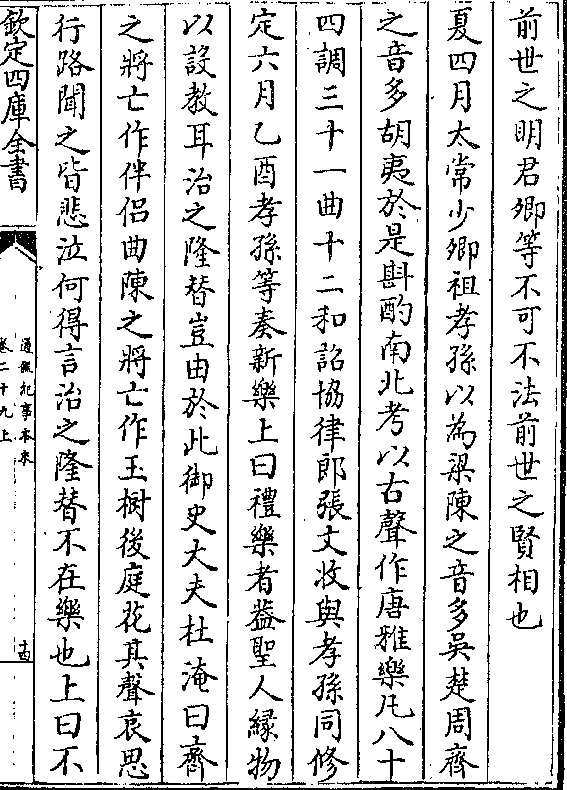 前世之明君卿等不可不法前世之賢相也
夏四月太常少卿祖孝孫以為梁陳之音多吳楚周齊
之音多胡夷於是斟酌南北考以古聲作唐雅樂凡八十
四調三十一曲十二和詔協律郎張文收與孝孫同修
定六月乙酉孝孫等奏新樂上曰禮樂者葢聖人緣物
以設教耳治之隆替豈由於此御史大夫杜淹曰齊
之將亡作伴侣曲陳之將亡作玉樹後庭花其聲哀思
行路聞之皆悲泣何得言治之隆替不在樂也上曰不
欽定四庫全書
通鑑紀事本末
卷二十九上
十四